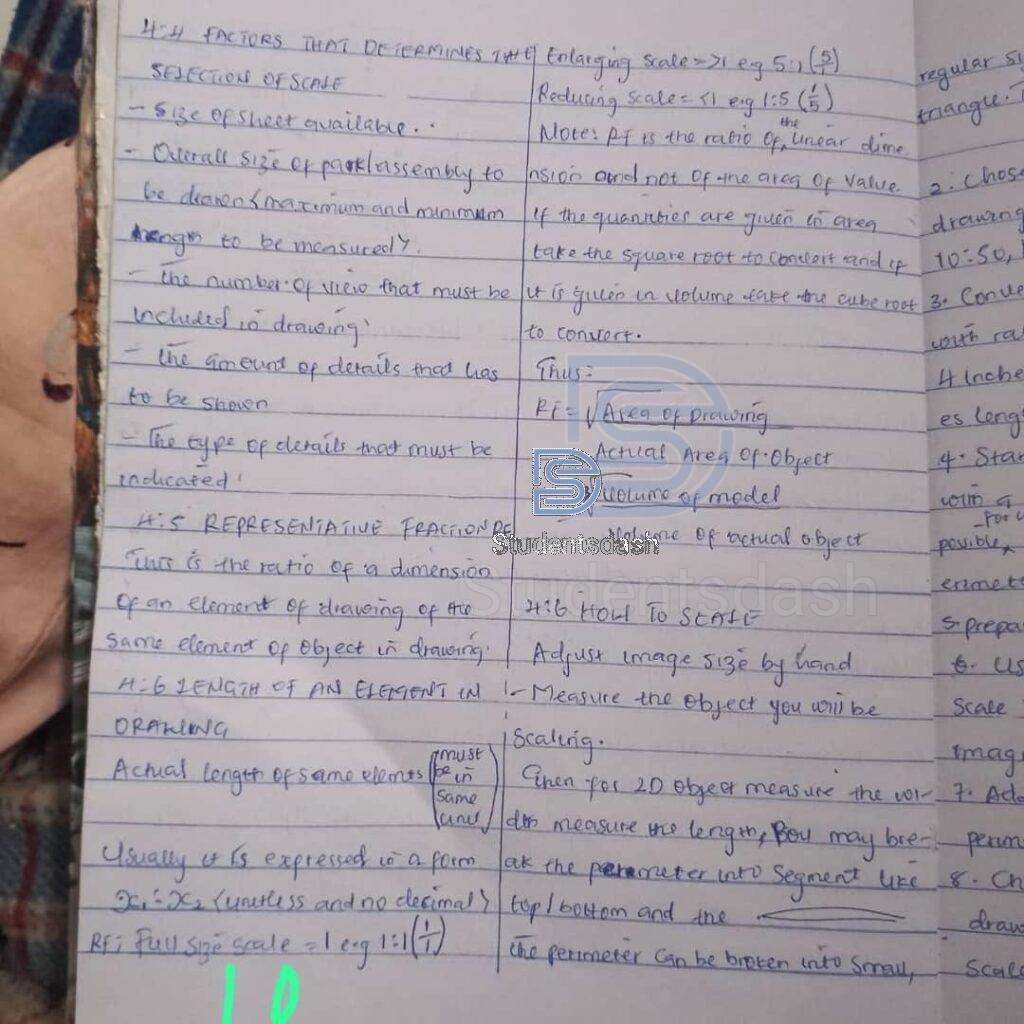 4:4 FACTORS THAT DETERMINES THE
SELECTION OF SCALE
- Size of sheet available.
- Overall size of part/assembly to
be drawn (maximum and minimum
length to be measured).
- The number of view that must be
included in drawing.
- The amount of details that has
to be shown
- The type of details that must be
indicated.
4:5 REPRESENTATIVE FRACTION RF
This is the ratio of a dimension
of an element of drawing of the
same element of object in drawing.
4:6 LENGTH OF AN ELEMENT IN
DRAWING
Actual length of same elemts (must
be in
same
unit)
Usually it is expressed in a form
x₁:x₂ (unitless and no decimal)
RF: Full size scale = 1 e.g 1:1 (1/1)
Enlarging scale = >1 eg 5:1 (5/1)
Reducing scale = <1 e.g 1:5 (1/5)
Note: RF is the ratio of the linear dime
nsion and not of the area of value.
If the quantities are given in area
take the square root to convert and if
it is given in volume take the cube root
to convert.
Thus:
RF = √Area of Drawing
Actual Area of Object
√Volume of model
Volume of actual object
4:6 HOW TO SCALE
Adjust image size by hand
1- Measure the object you will be
scaling.
for 2D object measure the wi-
dth measure the length, you may bre-
ak the perimeter into segment like
top/bottom and the
The perimeter can be broken into small,
regular si
triangle.
2. Chose
drawing
10:50,
3. Conve
with ra
4 inche
es leng
4. Star
with a
for
possible
erimet
5. prepa
6. Us
Scale
imag
7. Ad
perim
8. Ch
draw
Scal
Studentsdash
Studentsdash